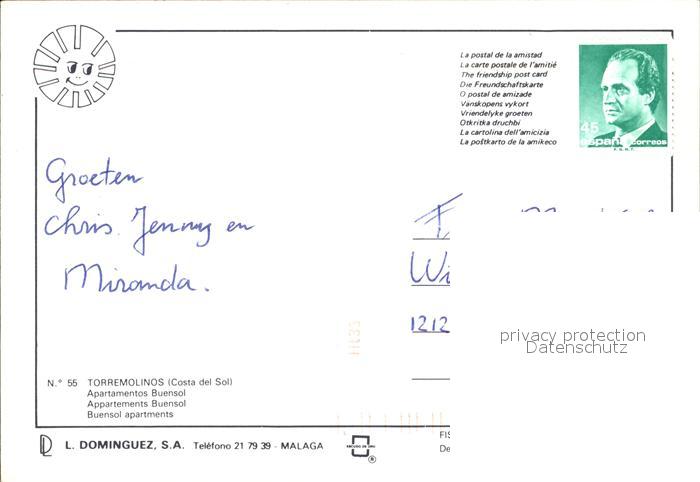 La postal de la amistad
La carte postale de l'amitié
The friendship post card
Die Freundschaftskarte
O postal de amizade
Vanskopens vykort
Vriendelyke groeten
Otkritka druchbi
La cartolina dell'amicizia
La poŝtkarto de la amikeco
45
españa correos
F.N.M.T.
Groeten
Chris. Jenny en
Miranda.
Wi
1212
privacy protection
Datenschutz
N.° 55 TORREMOLINOS (Costa del Sol)
Apartamentos Buensol
Appartements Buensol
Buensol apartments
L. DOMINGUEZ, S.A. Teléfono 21 79 39 - MALAGA
ESCUDO DE ORO
®
FIS
De